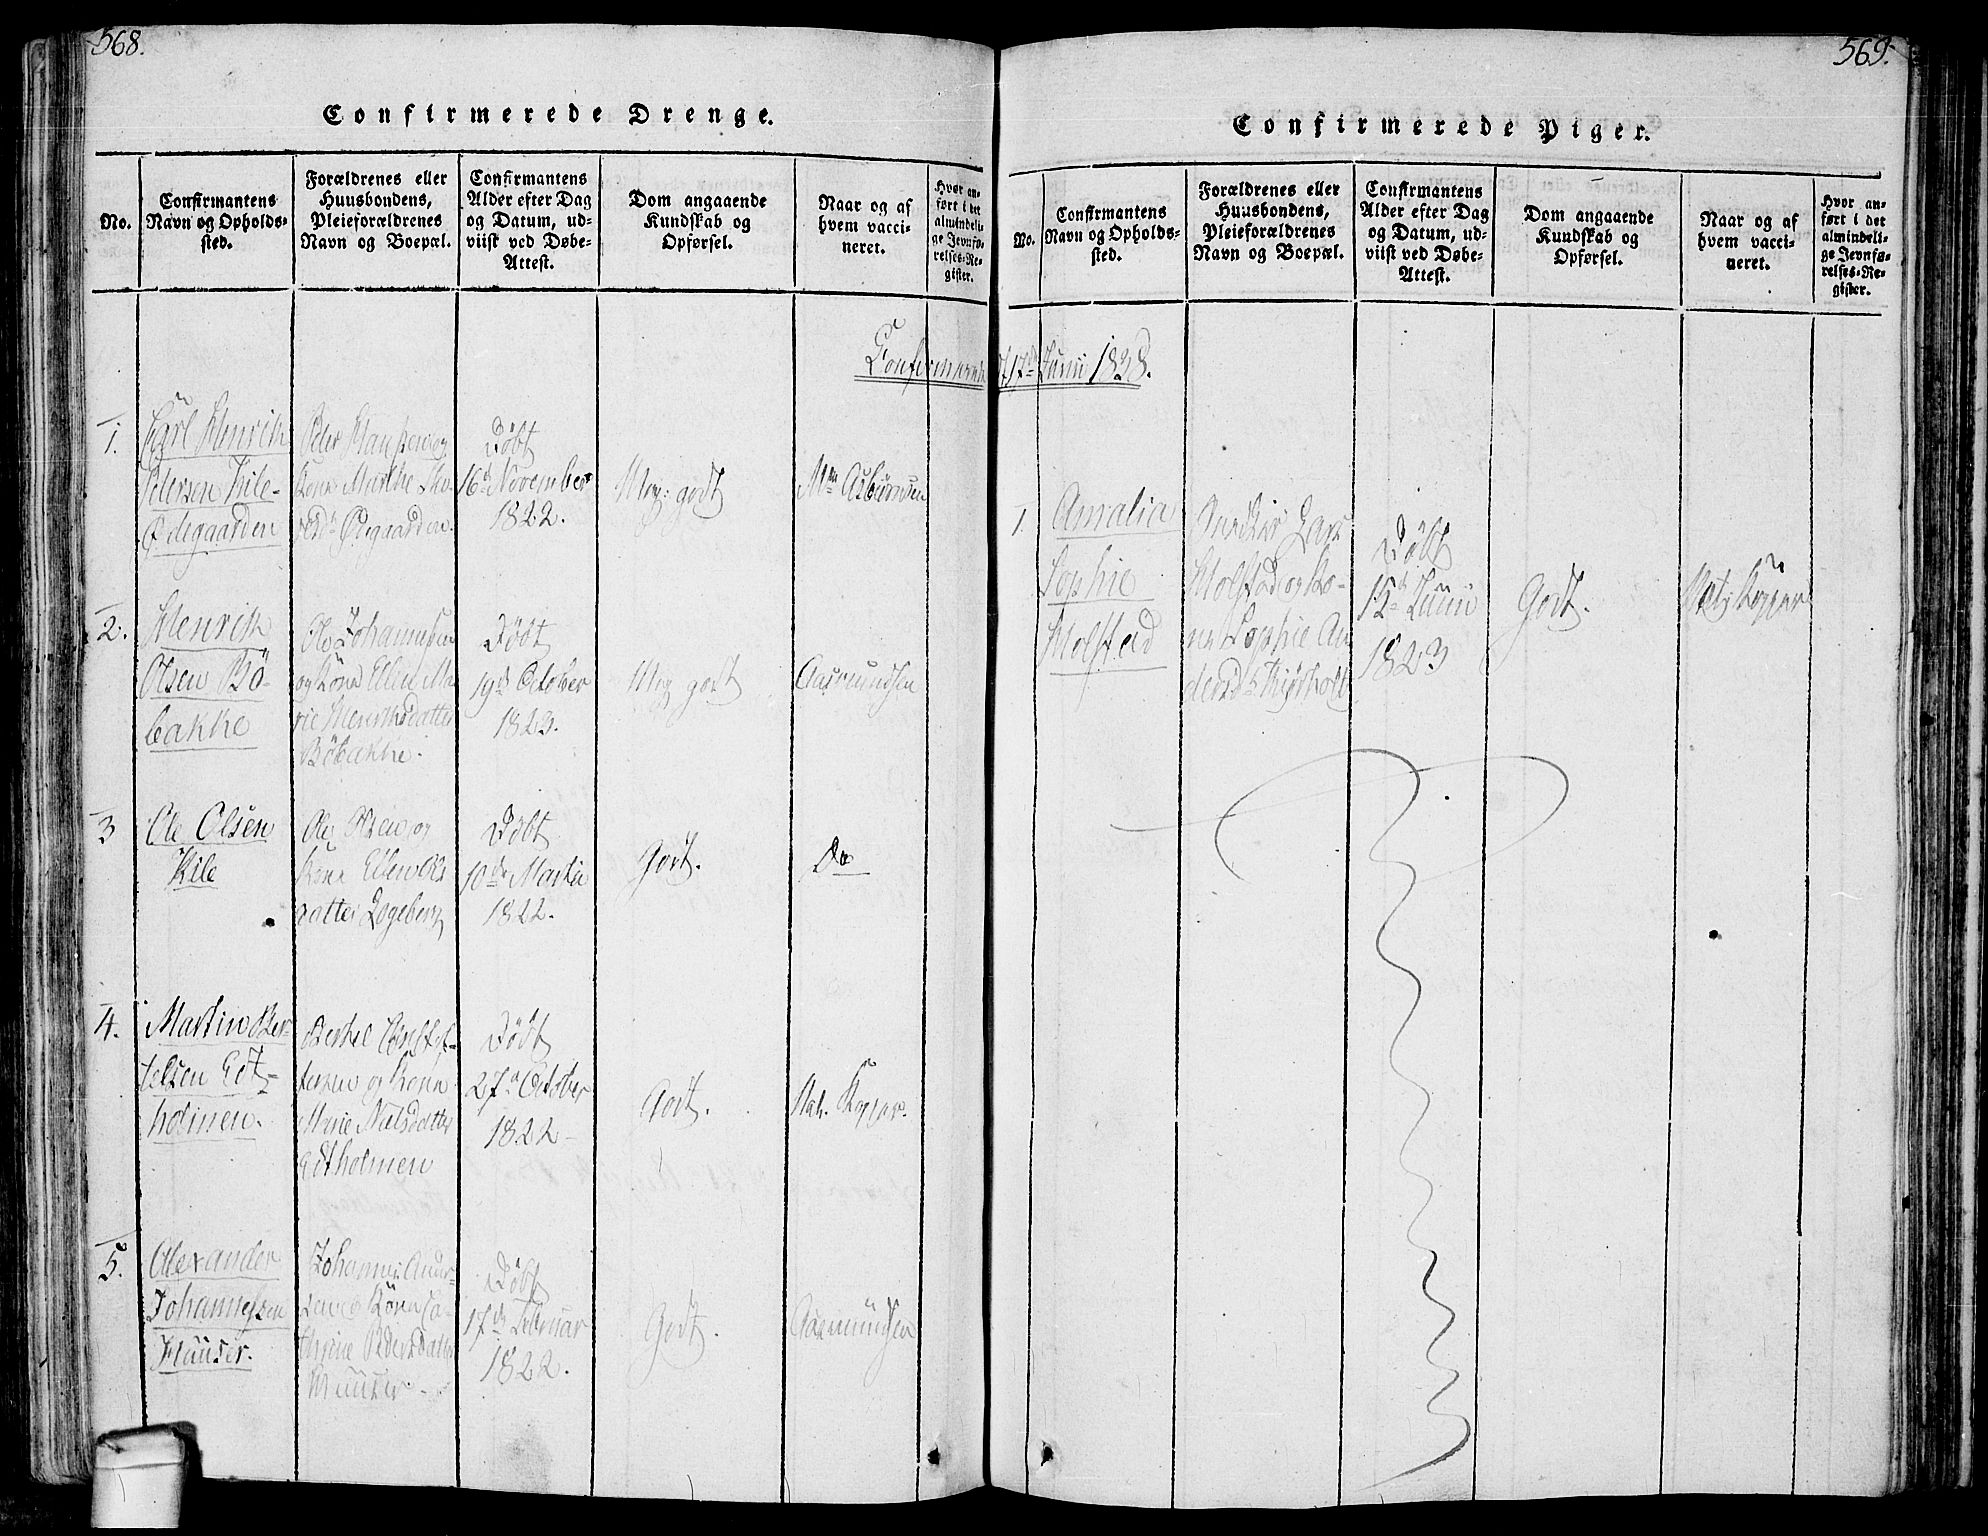 568.
Confirmerede Drenge.
No.
Confirmantens
Navn og Opholds-
sted.
Forældrenes eller
Huusbondens,
Pleieforældrenes
Navn og Boepæl.
Confirmantens
Alder efter Dag
og Datum, ud-
viist ved Døbe-
Attest.
Dom angaaende
Kundskab og
Opførsel.
Naar og af
hvem vacci-
neret.
Hvor an-
ført i det
almindeli-
ge Jevnfø-
relses-Re-
gister.
1.
Carl Henrik
Pedersen Kile-
Ødegaarden
Peder Hansen og
Kone Marthe
Ødegaarden.
Døbt
16d November
1822.
Meg: godt
Asbiørnsen
2.
Henrik
Olsen Bö-
bakke
Ole Johannesen
og Kone Ellen Ma-
rie Henriksdatter
Böbakke.
Döbt
19de October
1823.
Meg godt
Aasmundsen
3
Ole Olsen
Kile
Ole Olsen og
Kone Ellen Ols
datter Logeberg
Döbt
10de Martii
1822.
Godt.
Do
4.
Martin Ber-
telsen Edt-
holmen.
Bertel Christof-
fersen og Kone
Marie Nielsdatter
Edtholmen
Döbt
27d October
1822
Godt.
Nat. Kopper.
5.
Alexander
Johannessen
Hauser.
Johannes Ander-
sen og Kone Ca-
thrine Pedersdatter
Döbt
17de Februar
1822.
Godt.
Aasmundsen
569.
Confirmerede Piger.
No.
Confirmantens
Navn og Opholds-
sted.
Forældrenes eller
Huusbondens,
Pleieforældrenes
Navn og Boepæl.
Confirmantens
Alder efter Dag
og Datum, ud-
viist ved Døbe-
Attest.
Dom angaaende
Kundskab og
Opførsel.
Naar og af
hvem vacci-
neret.
Hvor an-
ført i det
almindeli-
ge Jevnfø-
relses-Re-
gister.
17de Juni 1838.
1.
Amalia
Sophie
Holstad
Lars
Holstad og Ko-
ne Sophie An-
dersd. Kjørholt
Döbt
15d Juni
1823
Godt.
Nat. Kopper